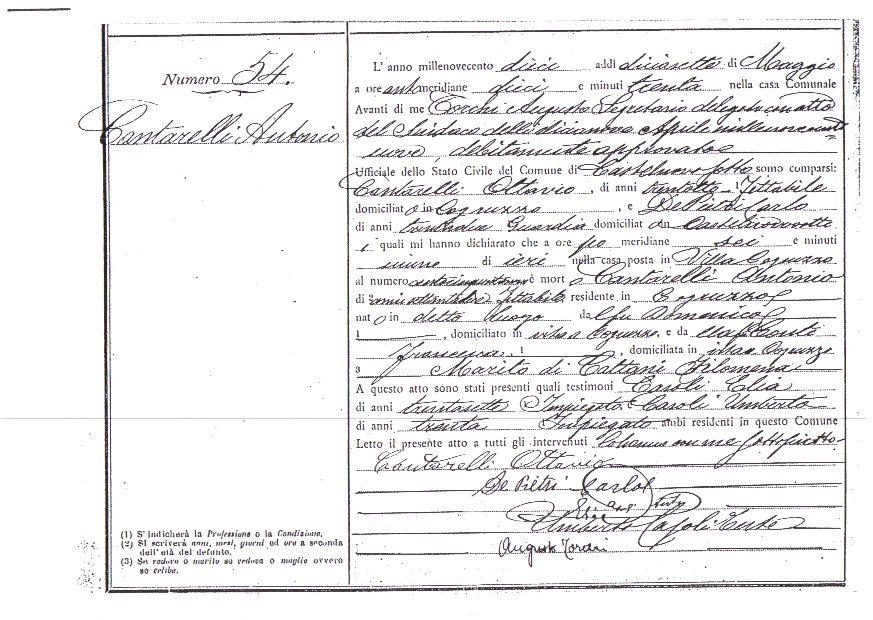 Numero 54.
Cantarelli Antonio
L' anno millenovecento dieci addì diciasette di Maggio
a ore antemeridiane dieci e minuti trenta nella casa Comunale
Avanti di me Torchi Augusto Segretario delegato con atto
del Sindaco delli diciannove Aprile millenovecento
nove, debitamente approvato
Ufficiale dello Stato Civile del Comune di Castelnovo Sotto sono comparsi:
Cantarelli Ottavio, di anni 1 Fittabile
domiciliato in Cogruzzo, e De Pietri Carlo
di anni Guardia domiciliat in Castelnovosotto
i quali mi hanno dichiarato che a ore po meridiane sei e minuti
di ieri nella casa posta in Villa Cogruzzo
al numero è morto Cantarelli Antonio
di 2 anni Fittabile residente in Cogruzzo
nato in detto luogo da fu Domenico
1 , domiciliato in Cogruzzo, e da
Francesca, 1 , domiciliata in Cogruzzo
3 Marito di Cattani Filomena
A questo atto sono stati presenti quali testimoni Casoli Elia
di anni trentasette Impiegato e Casoli Umberto
di anni trenta Impiegato ambi residenti in questo Comune
Letto il presente atto a tutti gli intervenuti con me sottoscritto
Cantarelli Ottavio
De Pietri Carlo
Umberto Casoli Teste
Augusto Torchi
(1) S' indicherà la Professione o la Condizione.
(2) Si scriverà anni, mesi, giorni ed ore a seconda
dell' età del defunto.
(3) Se vedovo o marito se vedova o moglie ovvero
se celibe.